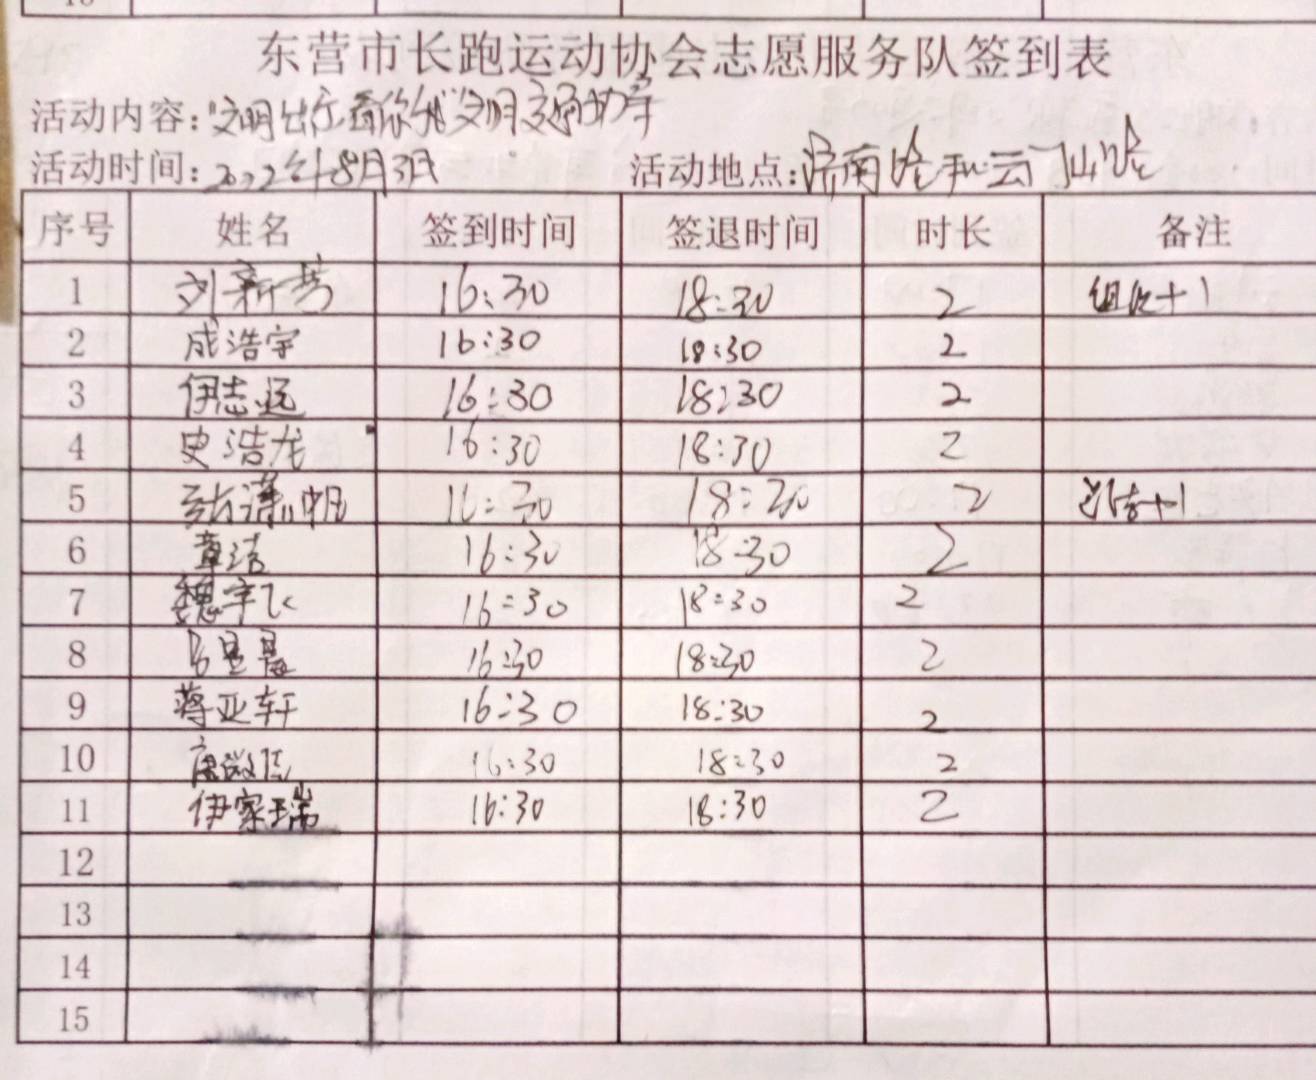 东营市长跑运动协会志愿服务队签到表
活动内容:"文明出行看你我"文明交通劝导
活动时间:2022年8月3日 活动地点:济南路和云门山路
序号 姓名 签到时间 签退时间 时长 备注
1 刘新芳 16:30 18:30 2 组织+1
2 成浩宇 16:30 18:30 2
3 伊志远 16:30 18:30 2
4 史浩龙 16:30 18:30 2
5 张潇帆 16:30 18:30 2 总结+1
6 童洁 16:30 18:30 2
7 魏宇飞 16:30 18:30 2
8 16:30 18:30 2
9 蒋亚轩 16:30 18:30 2
10 16:30 18:30 2
11 伊家瑞 16:30 18:30 2
12
13
14
15